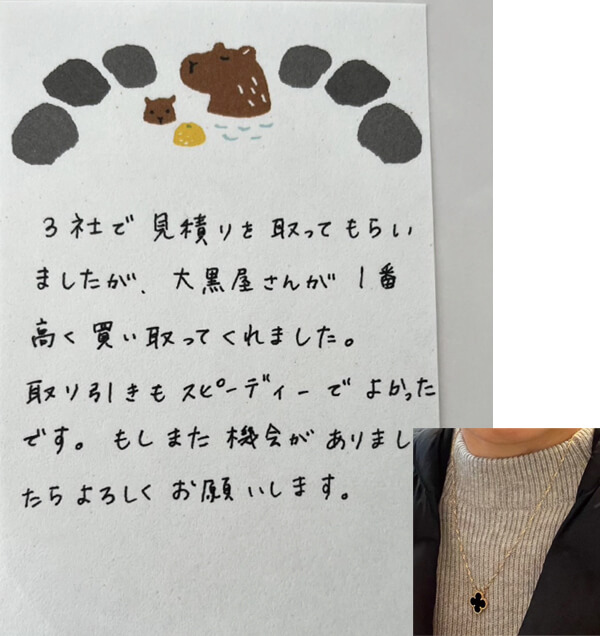 3社で見積りを取ってもらい
ましたが、大黒屋さんが1番
高く買い取ってくれました。
取り引きもスピーディーでよかった
です。もしまた機会がありまし
たらよろしくお願いします。